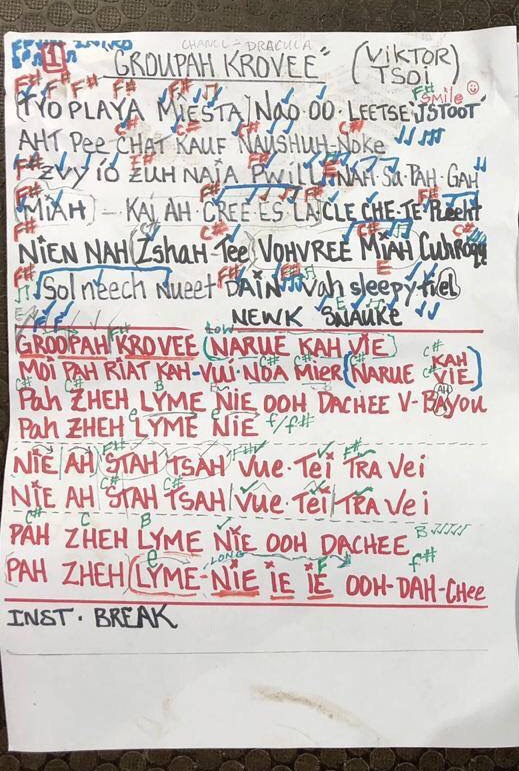 CHANCL - DRACULA
1 "GROUPAH KROVEE" (VIKTOR TSOI)
F# F F# F# F# F# Smile
(TYO PLAYA MIESTA) NOO·OO·LEETSE 'JSTOOT'
C# C# C#
AHT Pee CHAT KAUF NAUSHUH-NOKE
F# E
ZVY IO ZUH NAJA PWILL NAH·Sa·PAH·GAH
F# F# F#
(MIAH) - KAJ AH·CREE·ES·LA CLE CHE·TE·
F# C# C# C#
NIEN NAH (ZshAH-Tee) VOHVREE MIAH
F# F# E
Sol neech nueet DAIN Vah sleepy
E E
NEWK SNAUKE
F F F# LOW
GROOPAH KROVEE (NARUE KAH VIE)
C# C# C# C#
MOI PAH RIAT KAH-VUI·NDA MIER (NARUE KAH VIE)
C# B AH
Pah ZHEH LYME NIE OOH DACHEE V-BAYOU
e e
Pah ZHEH LYME NIE f/f#
F# F# F#
NIE AH STAH TSAH VUE·TEI TRA VEI
C# C#
NIE AH STAH TSAH VUE TEI TRA VEI
C# C B
PAH ZHEH LYME NIE OOH DACHEE B
e LONG F f#
PAH ZHEH (LYME-NIE IE IE OOH-DAH-CHEE
INST. BREAK